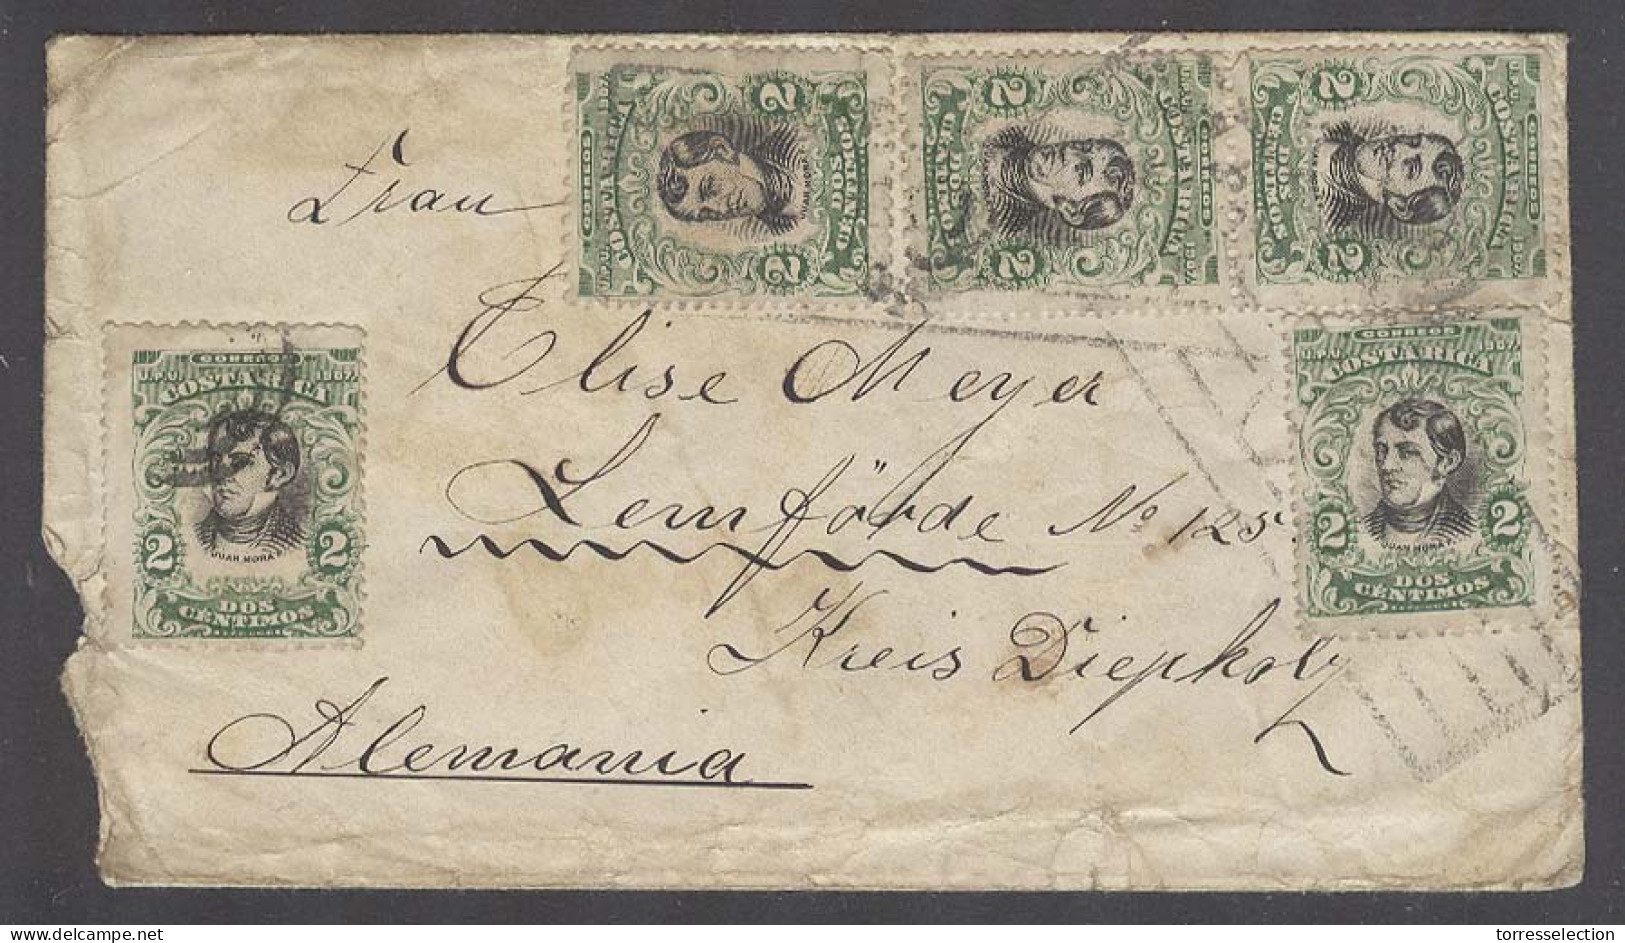 CORREOS
U.P.U. 1907.
COSTA RICA
2 2
JUAN MORA
DOS
CÉNTIMOS
CORREOS
U.P.U. 1907.
COSTA RICA
2 2
JUAN MORA
DOS
CÉNTIMOS
CORREOS
U.P.U. 1907.
COSTA RICA
2 2
DOS
CÉNTIMOS
Frau
Elise Meyer
CORREOS
U.P.U. 1907.
COSTA RICA
2 2
JUAN MORA
DOS
CÉNTIMOS
CORREOS
U.P.U. 1907.
COSTA RICA
2 2
JUAN MORA
DOS
CÉNTIMOS
Lemförde No 125.
Kreis Diepholz
Alemania
delcampe.net
torresselection